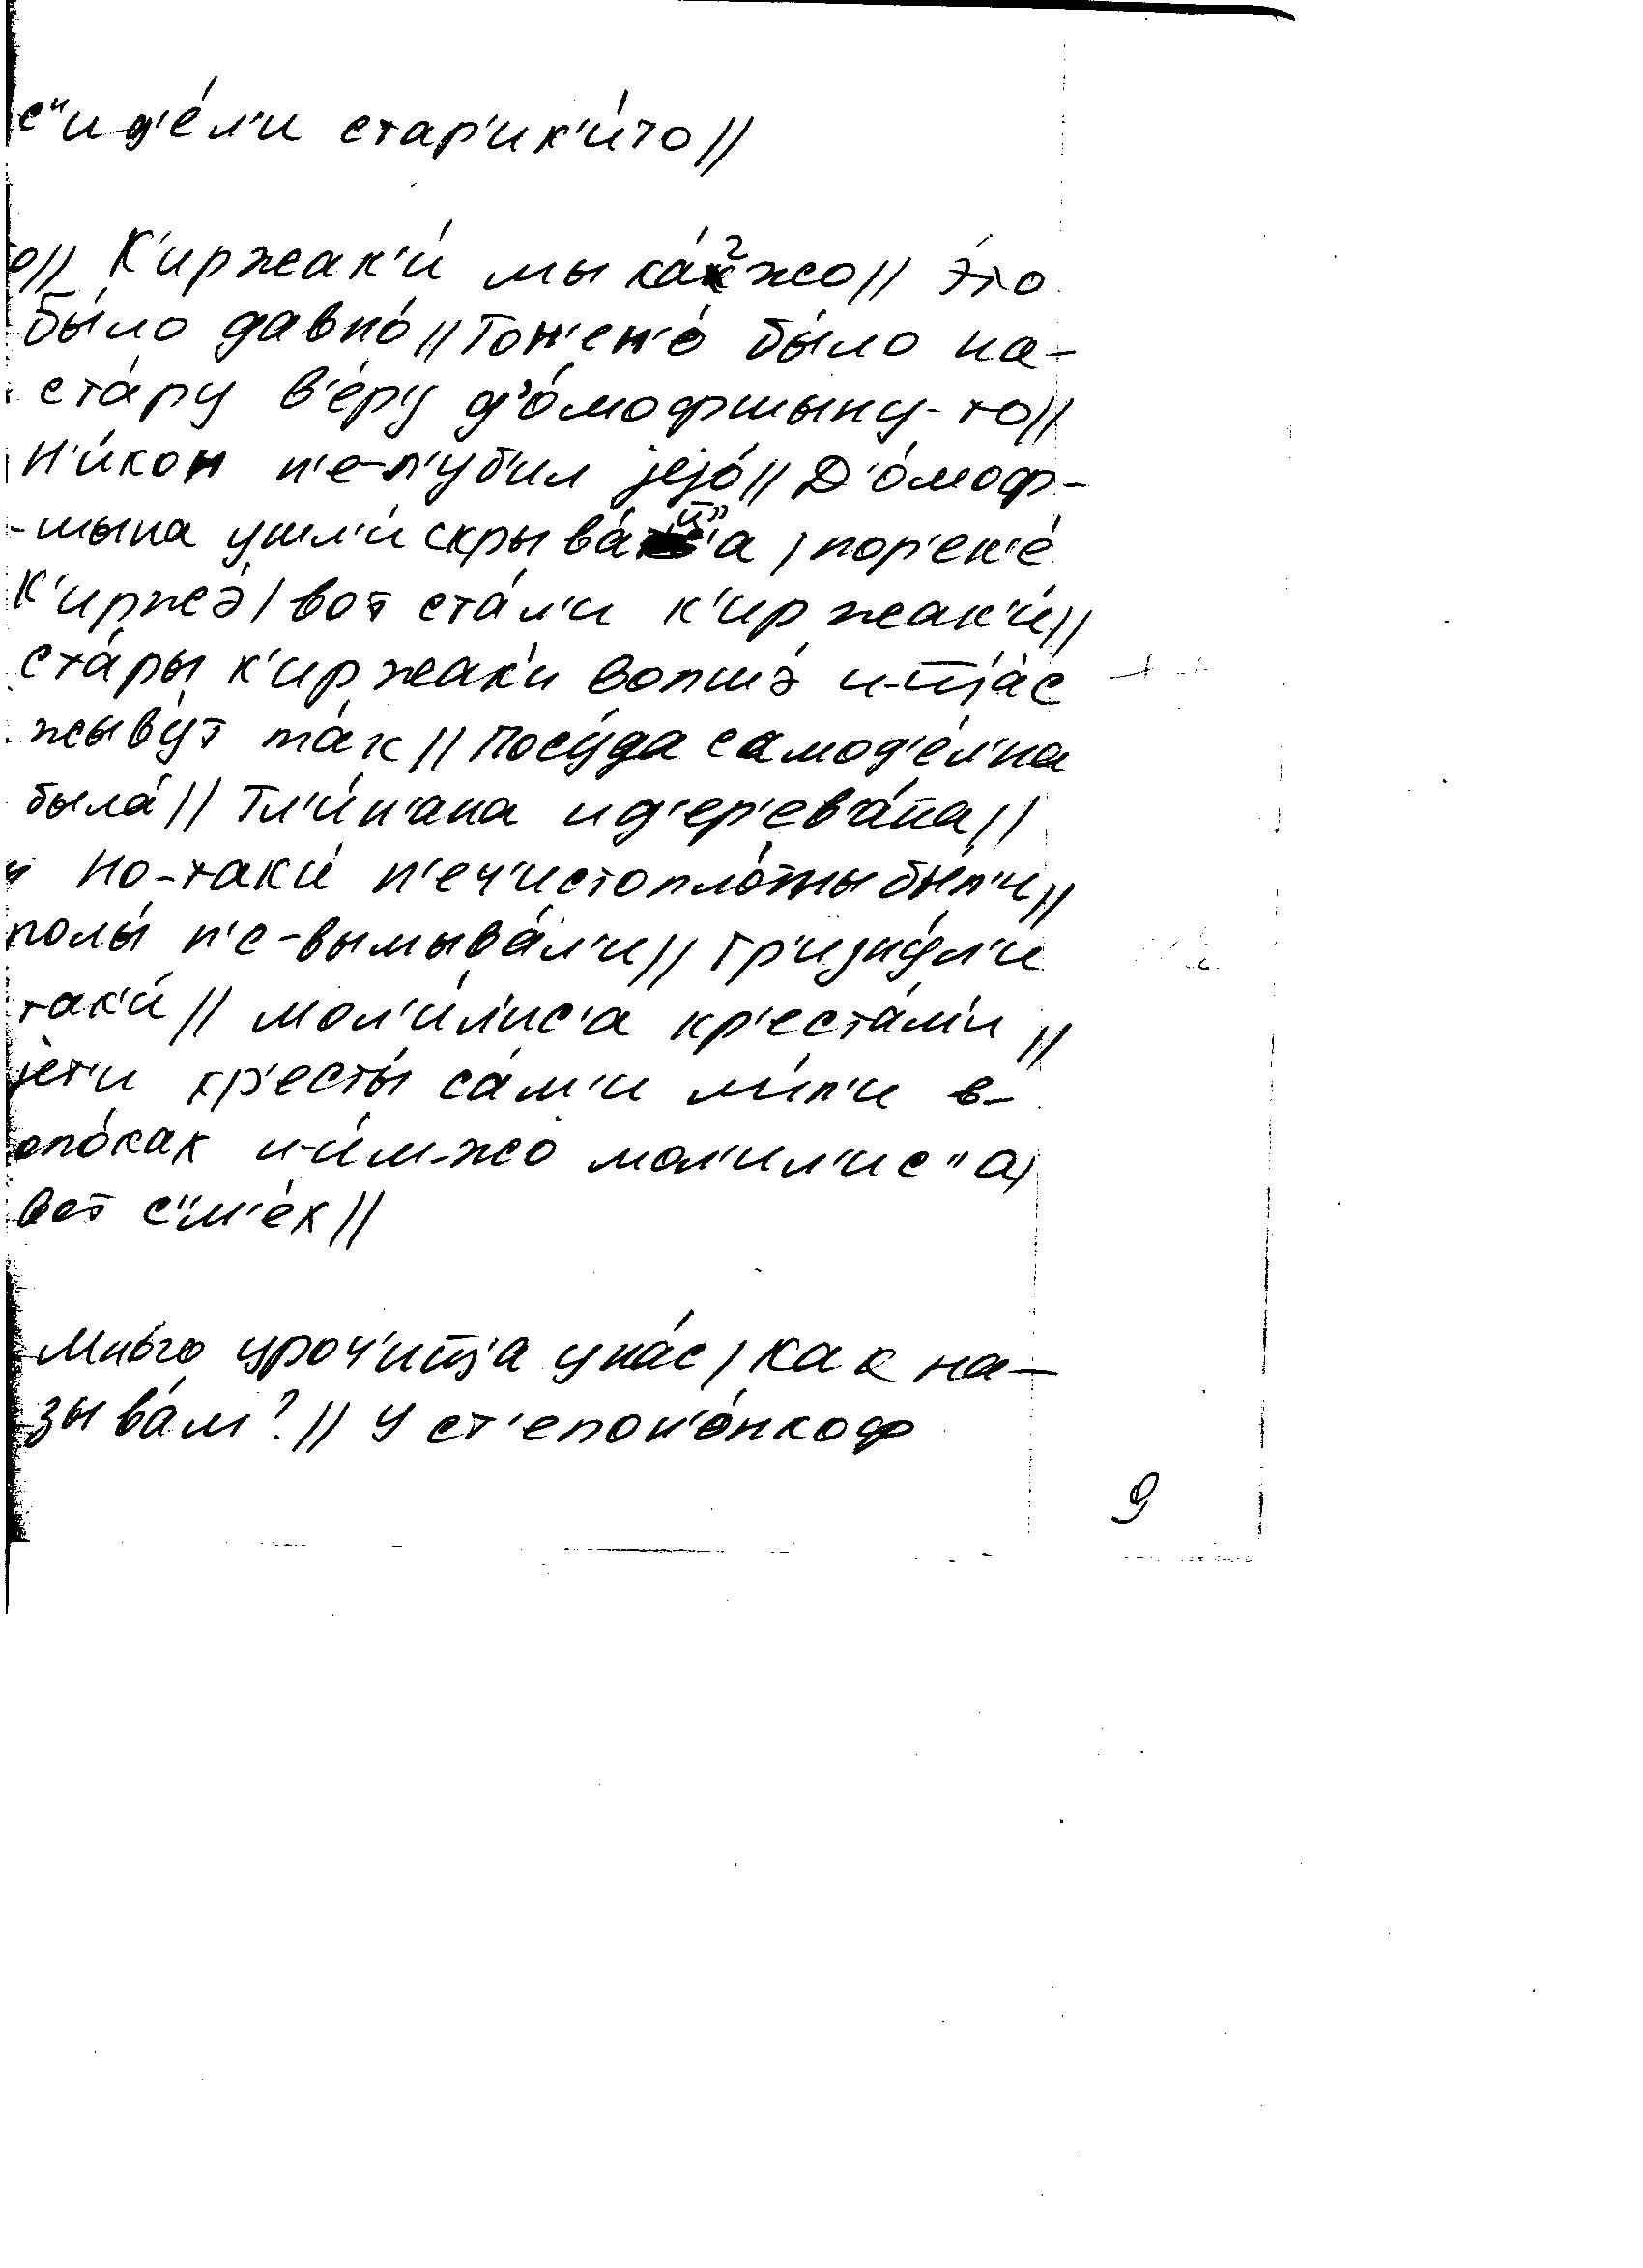 с"ид'е́л'и стар'ик'и́то//
о// К'иржак'и́ мы ка́гжо// э́то
бы́ло давно́// Гон'ен'о́ бы́ло на-
ста́ру в'е́ру д'о́мофшыну-то//
Н'и́кон н'е-л'уб'ил јејо́// Д'о́моф-
-шына ушл'и́ скрыва́ц"а, пор'ек'е́
К'иржэ́/ вот ста́л'и к'иржак'и́//
ста́ры к'иржак'и вопшэ́ и-ш'а́с
жыву́т та́к// посу́да самод'е́л'на
была́// Гл'и́н'ана и д'ер'ев'а́на//
но-таки́ н'еч'истопло́тны бы́л'и//
полы́ н'е-вымыва́л'и// Гр'изну́л'и
так'и́// мол'и́л'ис'а кр'еста́м'и//
јет'и кр'есты́ са́м'и л'и́л'и в-
опо́ках и-и́м-жо мол'ил'ис"а,
вот с"м'е́х//
Мно́го уроч'иш'а у на́с, как на-
зыва́м?// У ст'епон'о́нкоф
9